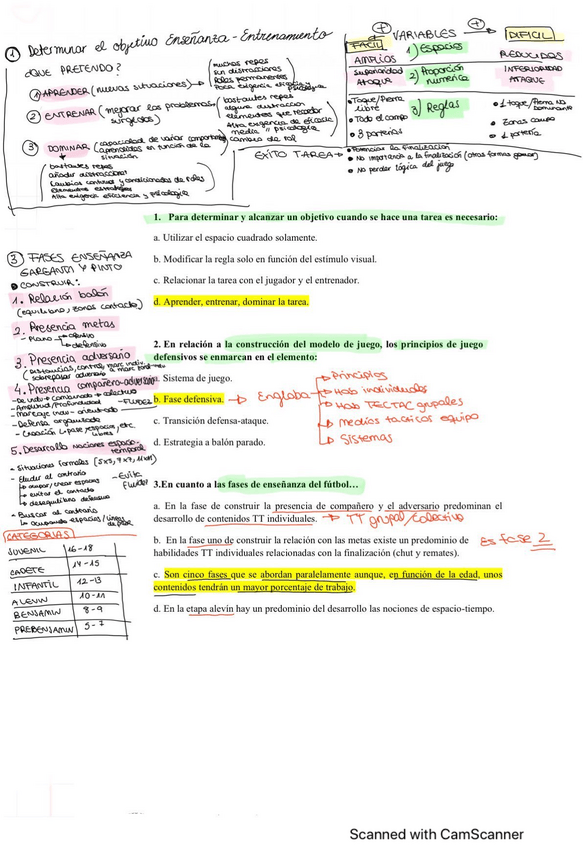 ① Determinar el objetivo Enseñanza - Entrenamiento
¿QUE PRETENDO?
① APRENDER (nuevas situaciones) → (muchas repes
sin distracciones
Roles permanentes
Poca exigencia
② ENTRENAR (mejorar los problemas surgidos) (bastantes repes
alguna distracción
elementos que
Alta exigencia de eficacia
media psicológica
③ DOMINAR (capacidad de variar comportam.
aprendidos en función de la
situación
cambio de rol
bastantes repes
añadir distracciones
Cambios continuos y condicionados de roles
Elementos estratégicos
Alta exigencia eficiencia y psicológica
+ VARIABLES +
FACIL → DIFICIL
1) Espacios
AMPLIOS REDUCIDOS
2) Proporción numérica
Superioridad Ataque INFERIORIDAD ATAQUE
3) Reglas
• Toque/Pierna libre • 1 toque/Pierna NO Dominante
• Todo el campo • Zonas campo
• 3 porterías • 1 portería
EXITO TAREA → • Potenciar la finalización
• No importancia a la finalización (otras formas ganar)
• No perder lógica del juego
1. Para determinar y alcanzar un objetivo cuando se hace una tarea es necesario:
a. Utilizar el espacio cuadrado solamente.
b. Modificar la regla solo en función del estímulo visual.
c. Relacionar la tarea con el jugador y el entrenador.
d. Aprender, entrenar, dominar la tarea.
③ FASES ENSEÑANZA
GARGANTA Y PINTO
• CONSTRUIR:
1. Relación balón
(equilibrio, zonas contacto)
2. Presencia metas
- Plano → ofensivo
→ defensivo
3. Presencia adversario
(Distancias, control, marc indiv.
4. Presencia compañero-adversario
- De indv → combinado → colectivo
- Amplitud/Profundidad
- Marcaje indiv - orientado
- Defensa organizada
- Creación líneas pase, espacios, etc.
libres
5. Desarrollo nociones espacio-
temporal
- Situaciones formales (5x5, 7x7, 11x11)
- Eludir al contrario
→ ocupar/crear espacios
→ evitar el contacto
→ desequilibrio defensivo
- Buscar al contrario
→ ocupando espacios/líneas
de pase
2. En relación a la construcción del modelo de juego, los principios de juego
defensivos se enmarcan en el elemento:
a. Sistema de juego.
b. Fase defensiva. → Engloba
→ Principios
→ Hab individuales
→ Hab TECTAC grupales
→ Medios tácticos equipo
→ Sistemas
c. Transición defensa-ataque.
d. Estrategia a balón parado.
3.En cuanto a las fases de enseñanza del fútbol…
a. En la fase de construir la presencia de compañero y el adversario predominan el
desarrollo de contenidos TT individuales. → TT grupal/Colectivo
b. En la fase uno de construir la relación con las metas existe un predominio de
habilidades TT individuales relacionadas con la finalización (chut y remates).
Es fase 2
c. Son cinco fases que se abordan paralelamente aunque, en función de la edad, unos
contenidos tendrán un mayor porcentaje de trabajo.
d. En la etapa alevín hay un predominio del desarrollo las nociones de espacio-tiempo.
CATEGORIAS
JUVENIL 16-18
CADETE 14-15
INFANTIL 12-13
ALEVIN 10-11
BENJAMIN 8-9
PREBENJAMIN 5-7
Scanned with CamScanner